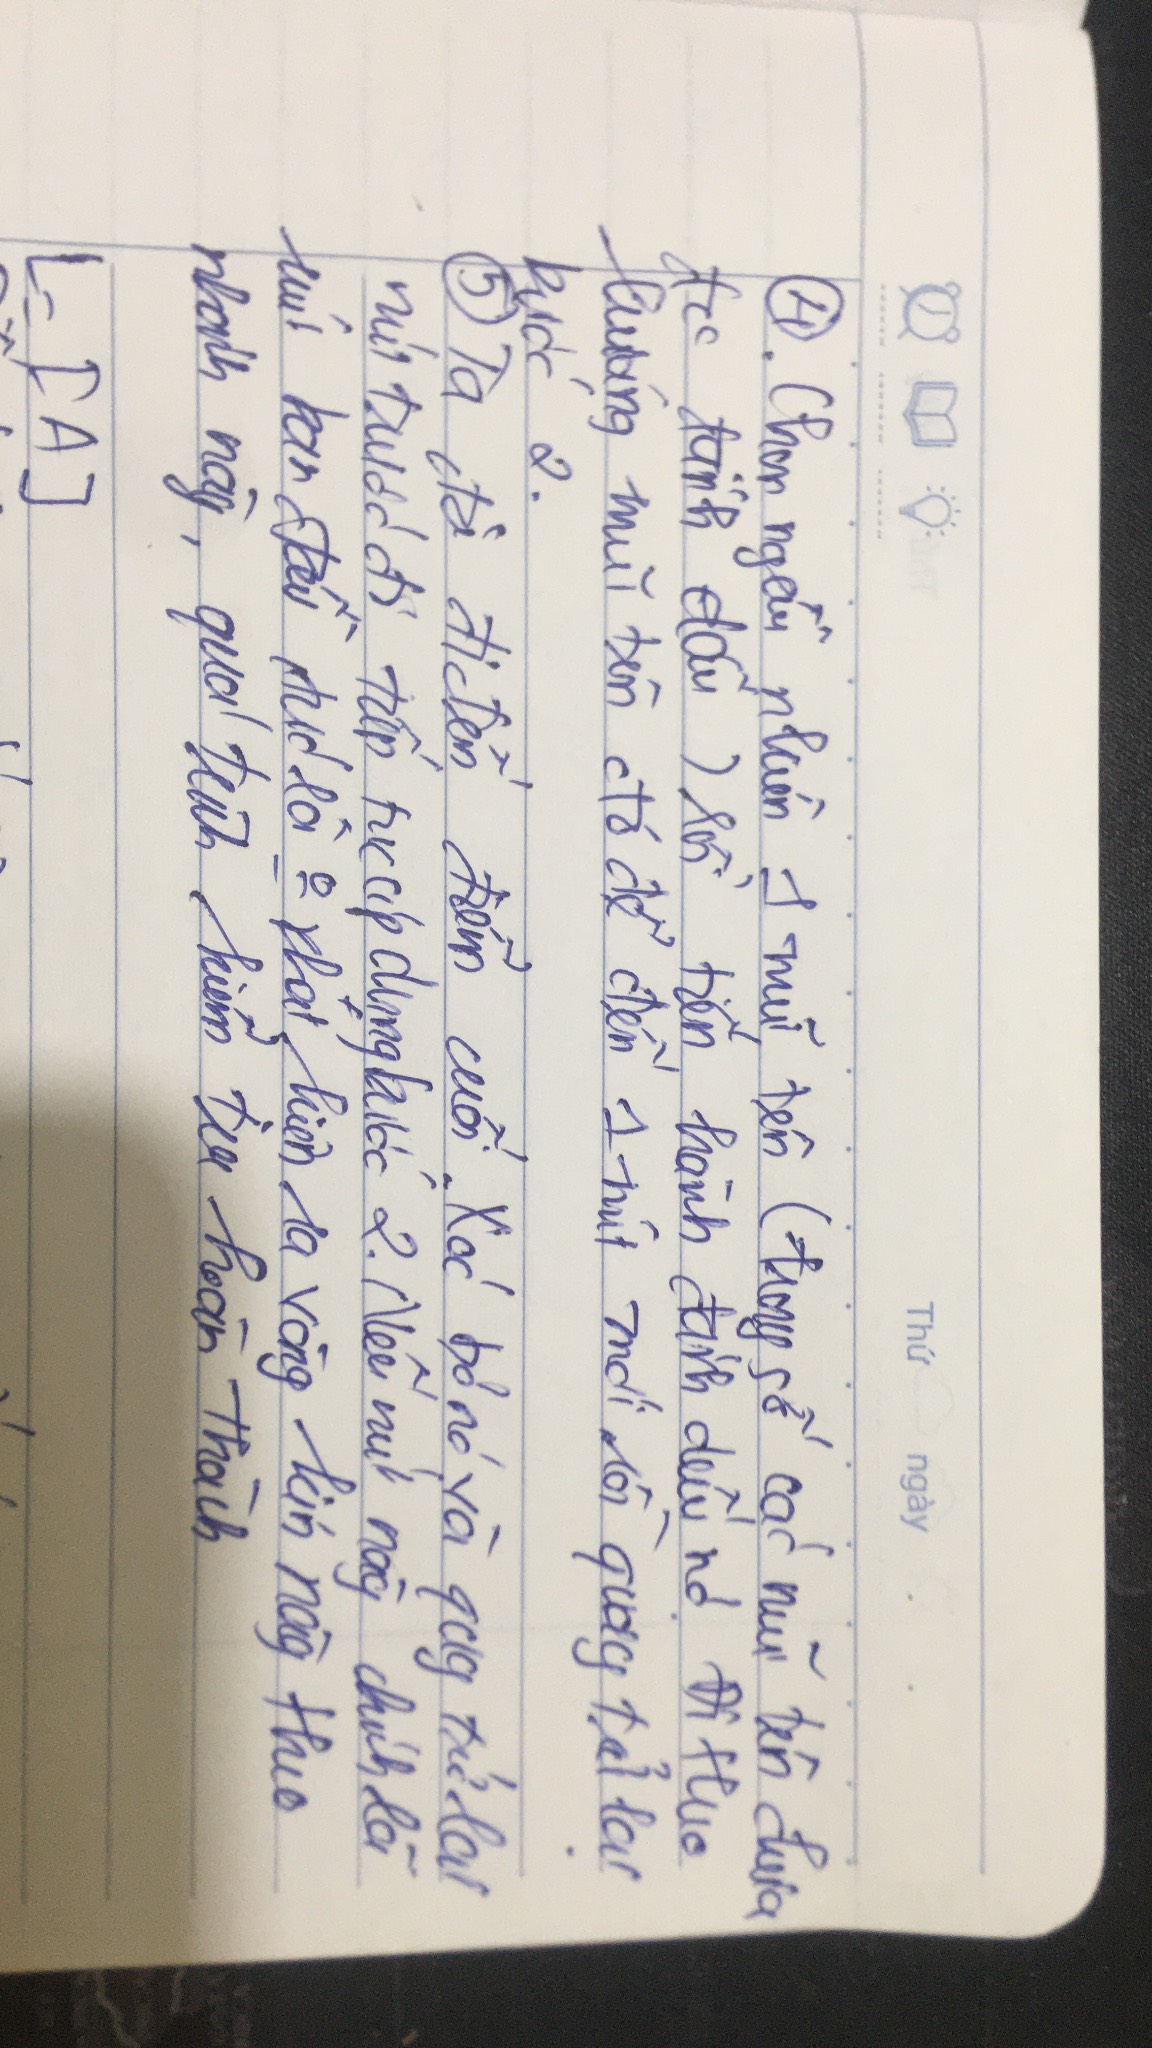 Thứ ngày
④. Chọn ngẫu nhiên 1 mũi tên (trong số các mũi tên chưa
đcc đánh dấu) rồi tiến hành đánh dấu nó. Đi theo
hướng mũi tên đó để đến 1 nút mới rồi quay trở lại
bước 2.
⑤ Ta đã đi đến điểm cuối. Xoá bỏ nó và quay trở lại
nút trước đó tiếp tục áp dụng bước 2. Nếu nút này chính là
nút ban đầu tức là phát hiện ra vòng kín này theo
nhánh này, quá trình kiểm tra hoàn thành
L = [A]